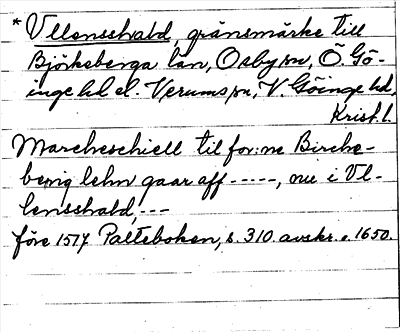 * Vllensshald, gränsmärke till
Björkeberga län, Osby sn, Ö. Gö-
inge hd el. Verums sn, V. Göinge hd,
Krist. l.
Marcheschiell til for:ne Birche-
berig lehn gaar aff -----, nu i Vl-
lensshald, ---
före 1517 Palteboken, s. 310. avskr. c. 1650.